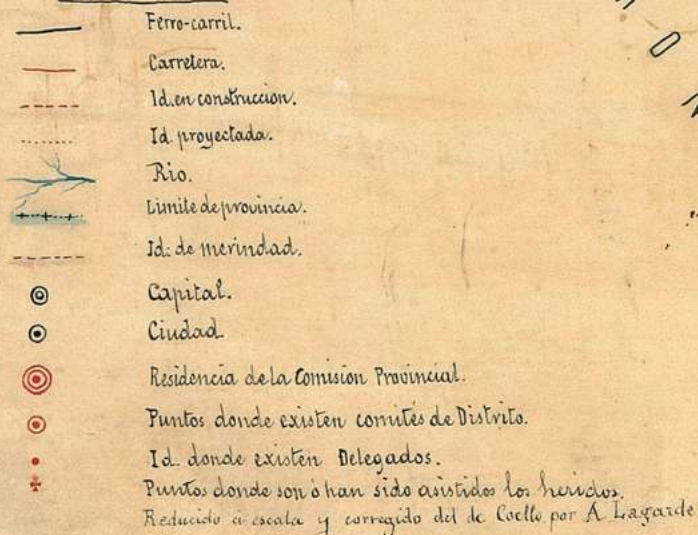 Ferro-carril.
Carretera.
Id. en construccion.
Id. proyectada.
Rio.
Limite de provincia.
Id: de merindad.
Capital.
Ciudad
Residencia de la Comision Provincial.
Puntos donde existen comités de Distrito.
Id. donde existen Delegados.
Puntos donde son ó han sido asistidos los heridos.
Reducido á escala y corregido del de Coello por A. Lagarde